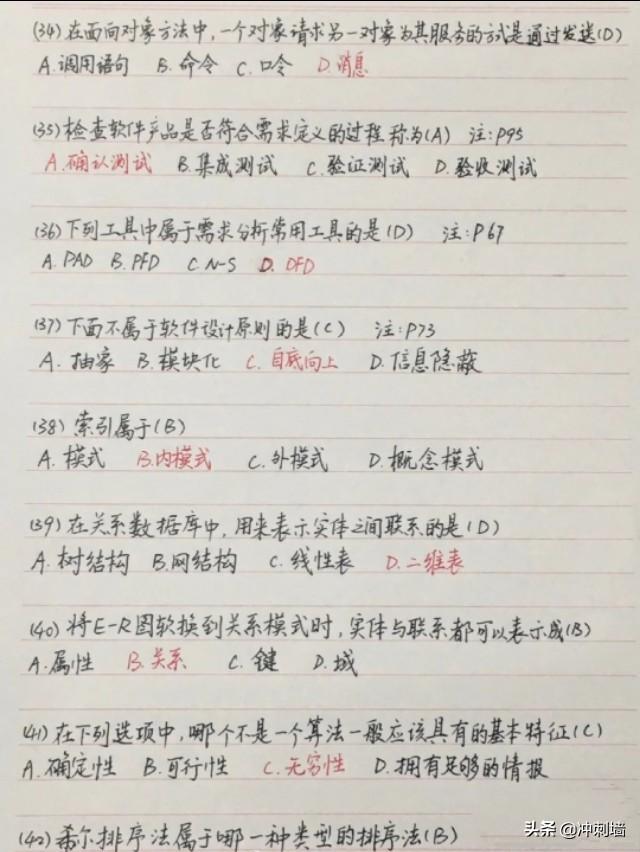 (34) 在面向对象方法中，一个对象请求另一对象为其服务的方式是通过发送(D)
A.调用语句 B.命令 C.口令 D.消息
(35) 检查软件产品是否符合需求定义的过程称为(A) 注:P95
A.确认测试 B.集成测试 C.验证测试 D.验收测试
(36) 下列工具中属于需求分析常用工具的是(D) 注:P67
A.PAD B.PFD C.N-S D.DFD
(37) 下面不属于软件设计原则的是(C) 注:P73
A.抽象 B.模块化 C.自底向上 D.信息隐蔽
(38) 索引属于(B)
A.模式 B.内模式 C.外模式 D.概念模式
(39) 在关系数据库中，用来表示实体之间联系的是(D)
A.树结构 B.网结构 C.线性表 D.二维表
(40) 将E-R图软换到关系模式时，实体与联系都可以表示成(B)
A.属性 B.关系 C.键 D.域
(41) 在下列选项中，哪个不是一个算法一般应该具有的基本特征(C)
A.确定性 B.可行性 C.无穷性 D.拥有足够的情报
(42) 希尔排序法属于哪一种类型的排序法(B)
头条 @冲刺墙